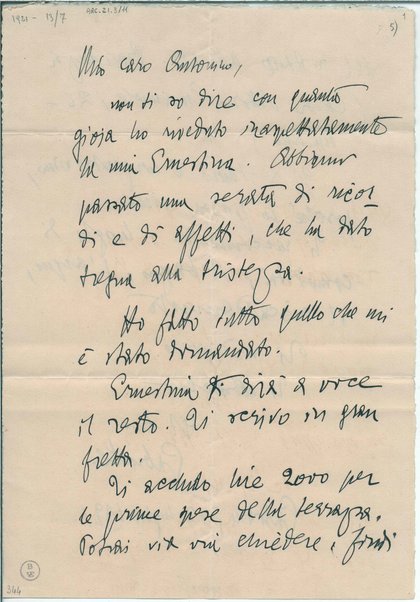 1921 - 13/7
ARC. 21. 3/11
1
5)
Mio caro Antonino,
non ti so dire con quanta
gioja ho riveduto inaspettatamente
la mia Ernestina. Abbiamo
passato una serata di ricor
di e di affetti, che ha dato
tregua alla tristezza.
Ho fatto tutto quello che mi
è stato domandato.
Ernestina ti dirà a voce
il resto. Ti scrivo in gran
fretta.
Ti accludo lire 2000 per
le prime spese della terrazza.
Potrai via via chiedere i fondi
344